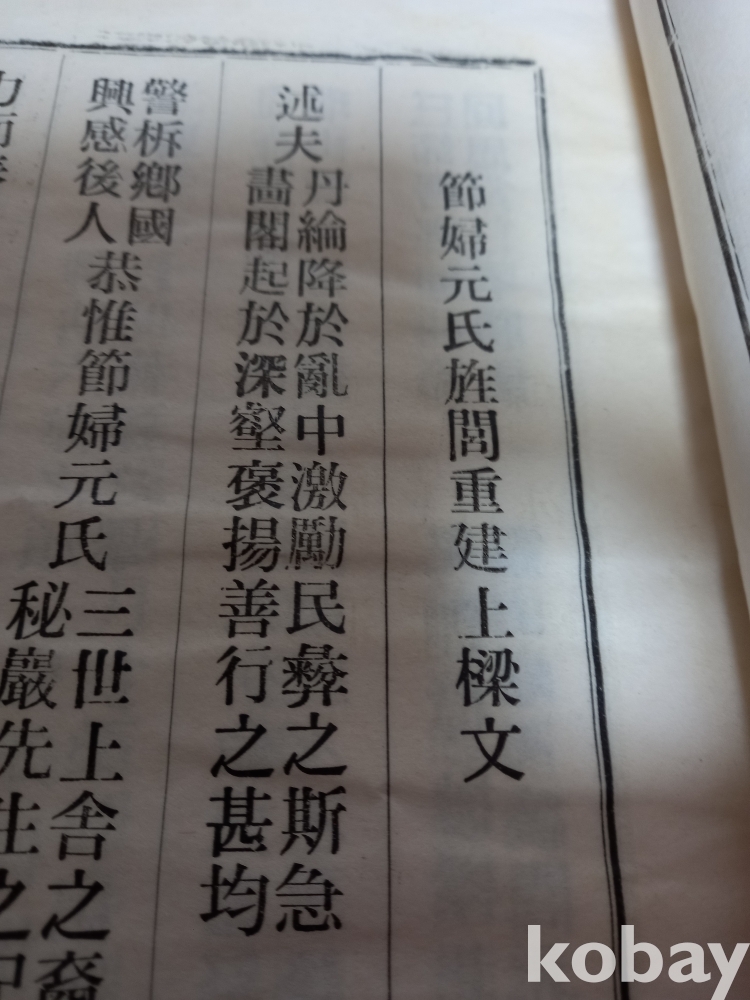 節婦元氏旌閭重建上樑文
述夫
丹綸降於亂中激勵民彝之斯急
畫閣起於深壑褒揚善行之甚均
警柝鄉國
興感後人
恭惟節婦元氏
三世上舍之裔
秘巖先生之
kobay